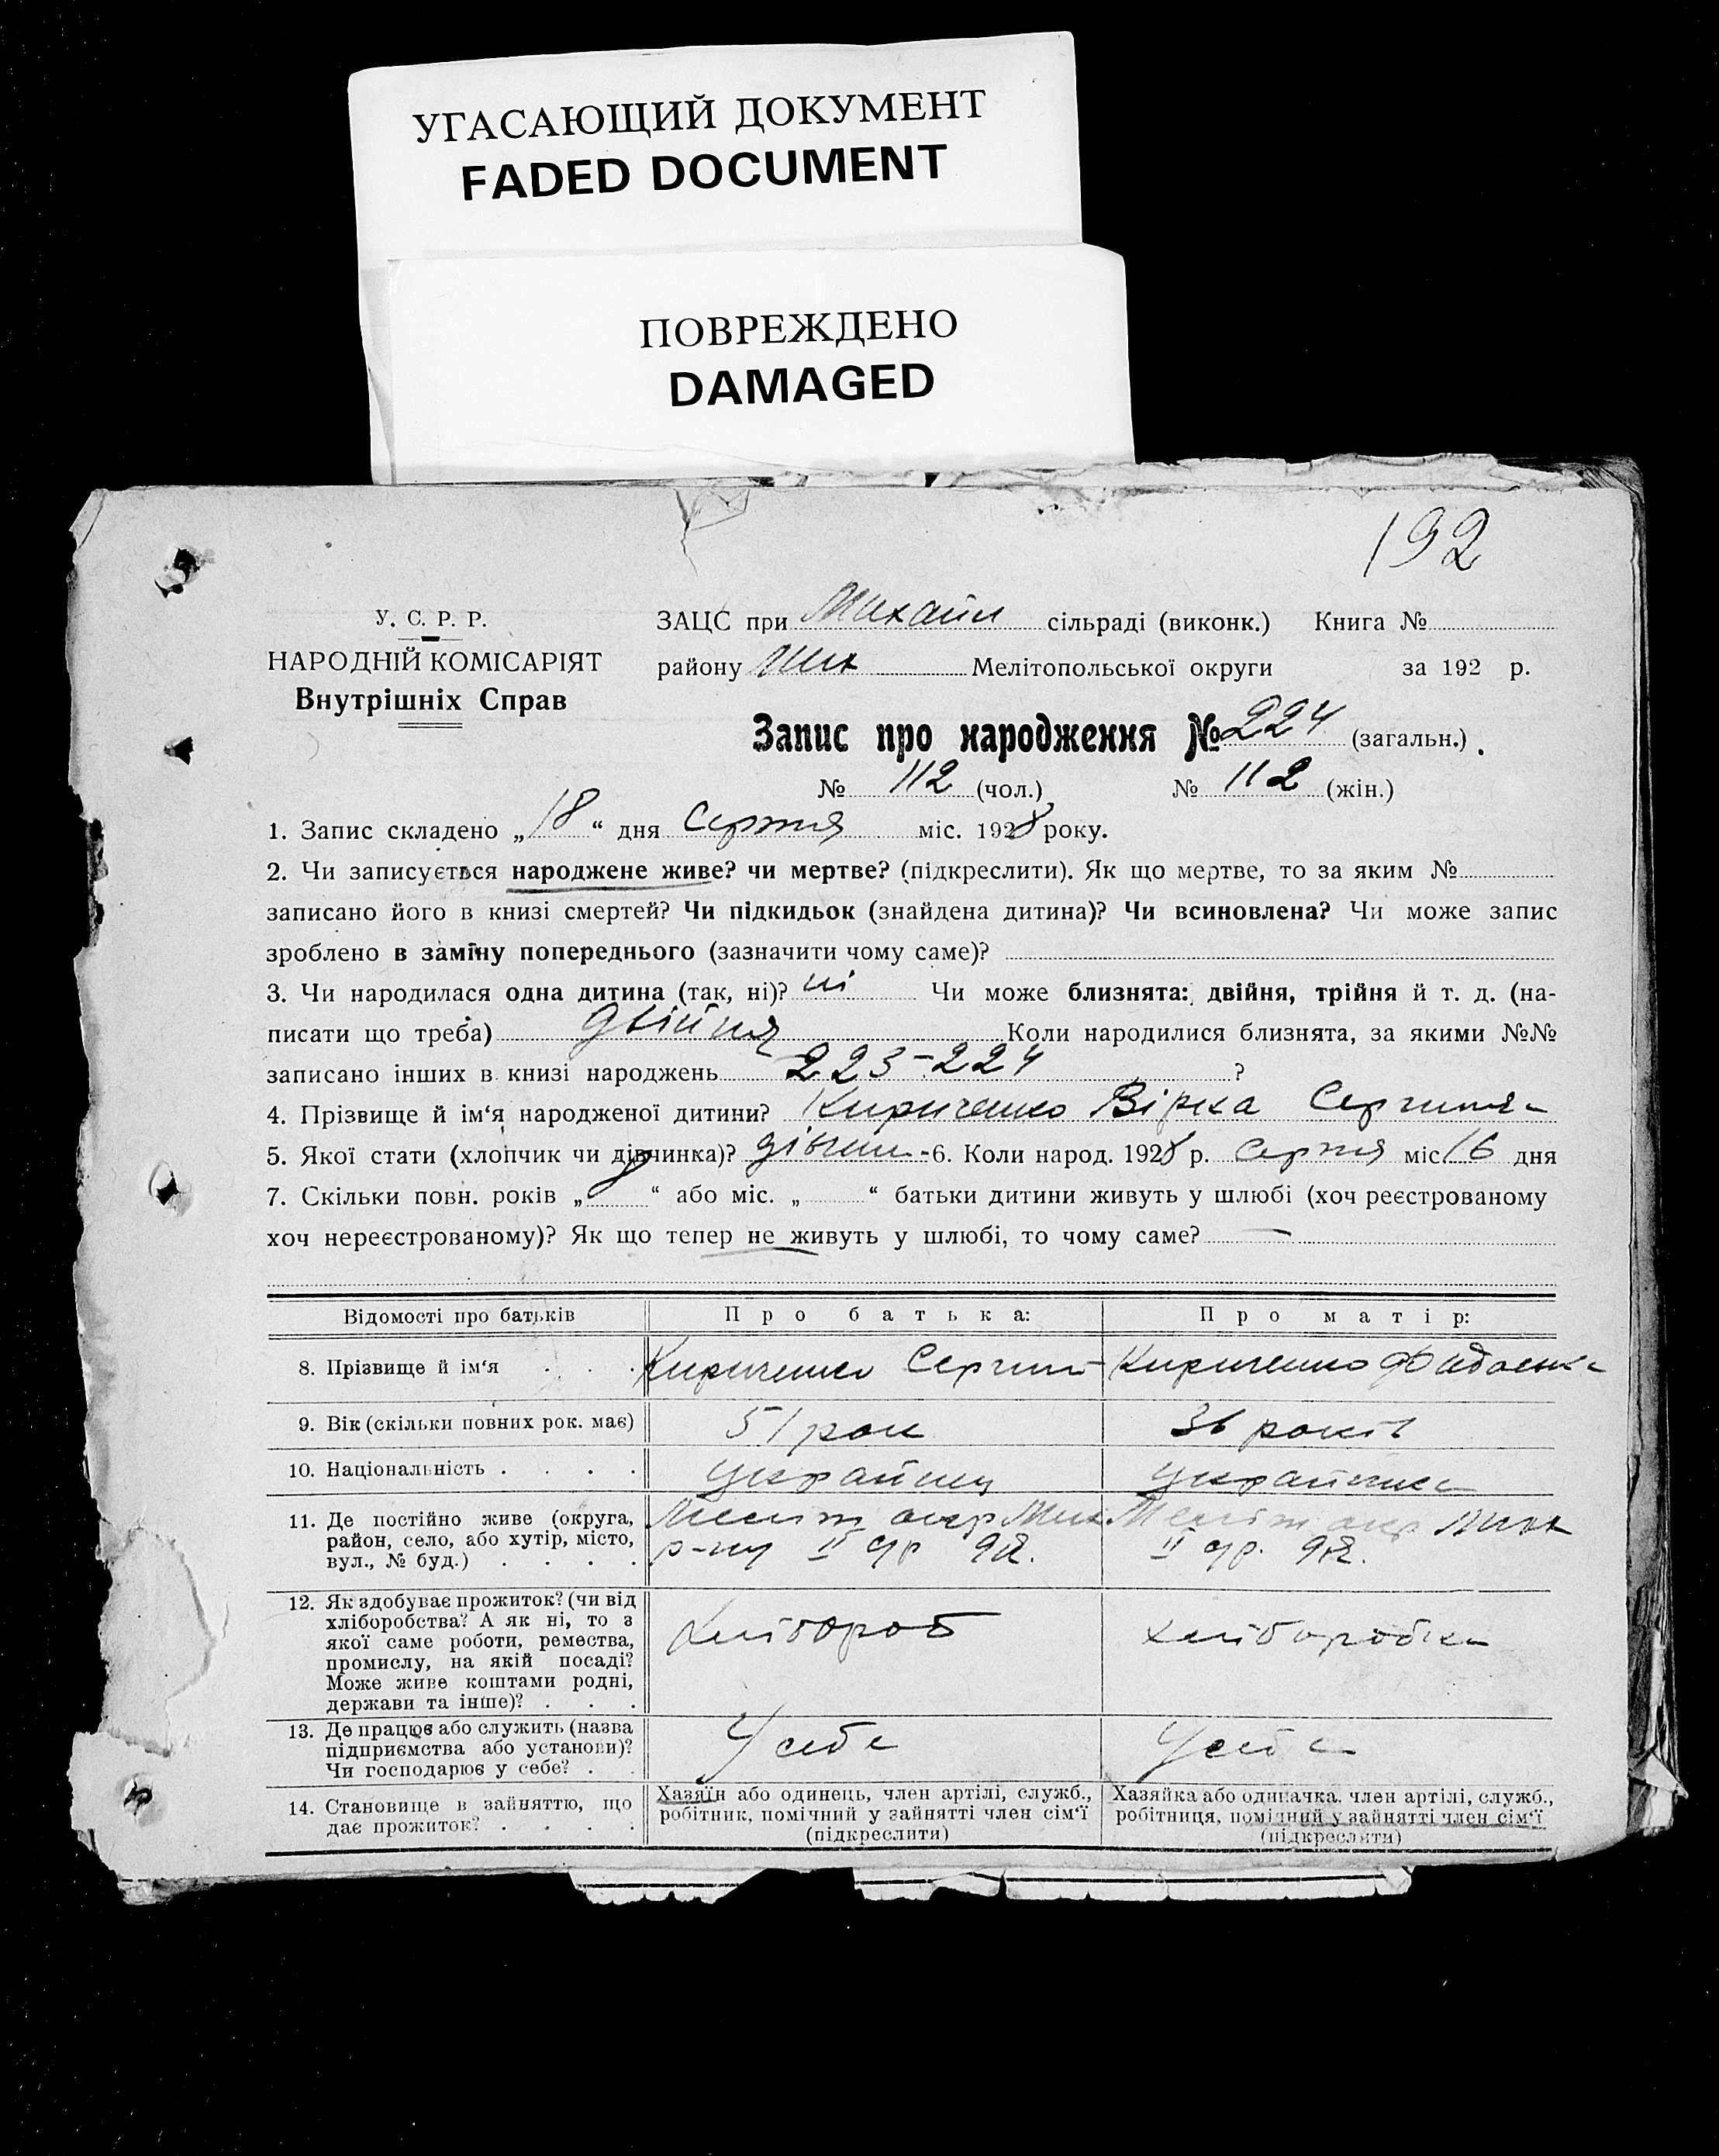 УГАСАЮЩИЙ ДОКУМЕНТ
FADED DOCUMENT
ПОВРЕЖДЕНО
DAMAGED
192
У. С. Р. Р.
НАРОДНІЙ КОМІСАРІЯТ
Внутрішніх Справ
ЗАЦС при Михайл сільраді (виконк.) Книга №
району Мих Мелітопольської округи за 192 р.
Запис про народження № 224 (загальн.).
№ 112 (чол.) № 112 (жін.)
1. Запис складено „18“ дня Серпня міс. 1928 року.
2. Чи записується народжене живе? чи мертве? (підкреслити). Як що мертве, то за яким №
записано його в книзі смертей? Чи підкидьок (знайдена дитина)? Чи всиновлена? Чи може запис
зроблено в заміну попереднього (зазначити чому саме)?
3. Чи народилася одна дитина (так, ні)? ні Чи може близнята: двійня, трійня й т. д. (на-
писати що треба) двійня Коли народилися близнята, за якими №№
записано інших в книзі народжень 223-224 ?
4. Прізвище й ім‘я народженої дитини? Кириченко Вірка
5. Якої стати (хлопчик чи дівчинка)? дівчин- 6. Коли народ. 1928 р. Серпня міс 16 дня
7. Скільки повн. років „ “ або міс. „ “ батьки дитини живуть у шлюбі (хоч реєстрованому
хоч нереєстрованому)? Як що тепер не живуть у шлюбі, то чому саме? —
Відомості про батьків Про батька: Про матір:
8. Прізвище й ім‘я . . . Кириченко Сергий Кириченко
9. Вік (скільки повних рок. має) 51 рок 36 років
10. Національність . . . . українец українка
11. Де постійно живе (округа, Меліт окр Мих Меліт окр Мих
район, село, або хутір, місто, р-ну II др 92. II др. 92.
вул., № буд.) . . . .
12. Як здобуває прожиток? (чи від
хліборобства? А як ні, то з хлібороб хліборобка
якої саме роботи, ремества,
промислу, на якій посаді?
Може живе коштами родні,
держави та інше)? . . .
13. Де працює або служить (назва
підприємства або установи)? У себе У себе
Чи господарює у себе? .
14. Становище в зайняттю, що Хазяїн або одинець, член артілі, служб., Хазяйка або одиначка. член артілі, служб.,
дає прожиток? . . . . робітник, помічний у зайнятті член сім‘ї робітниця, помічний у зайнятті член сім‘ї
(підкреслити) (підкреслити)